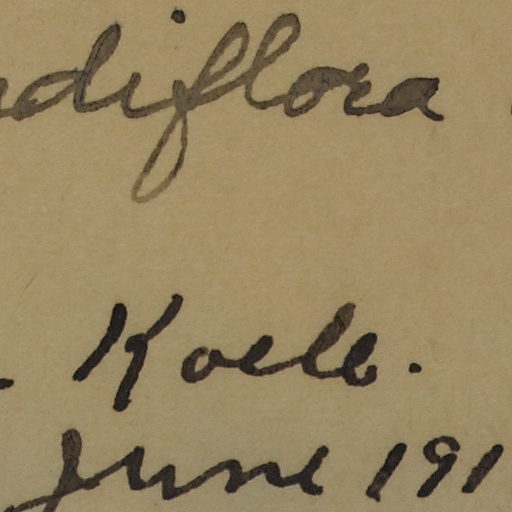 ndiflora
Koelb.
June 191